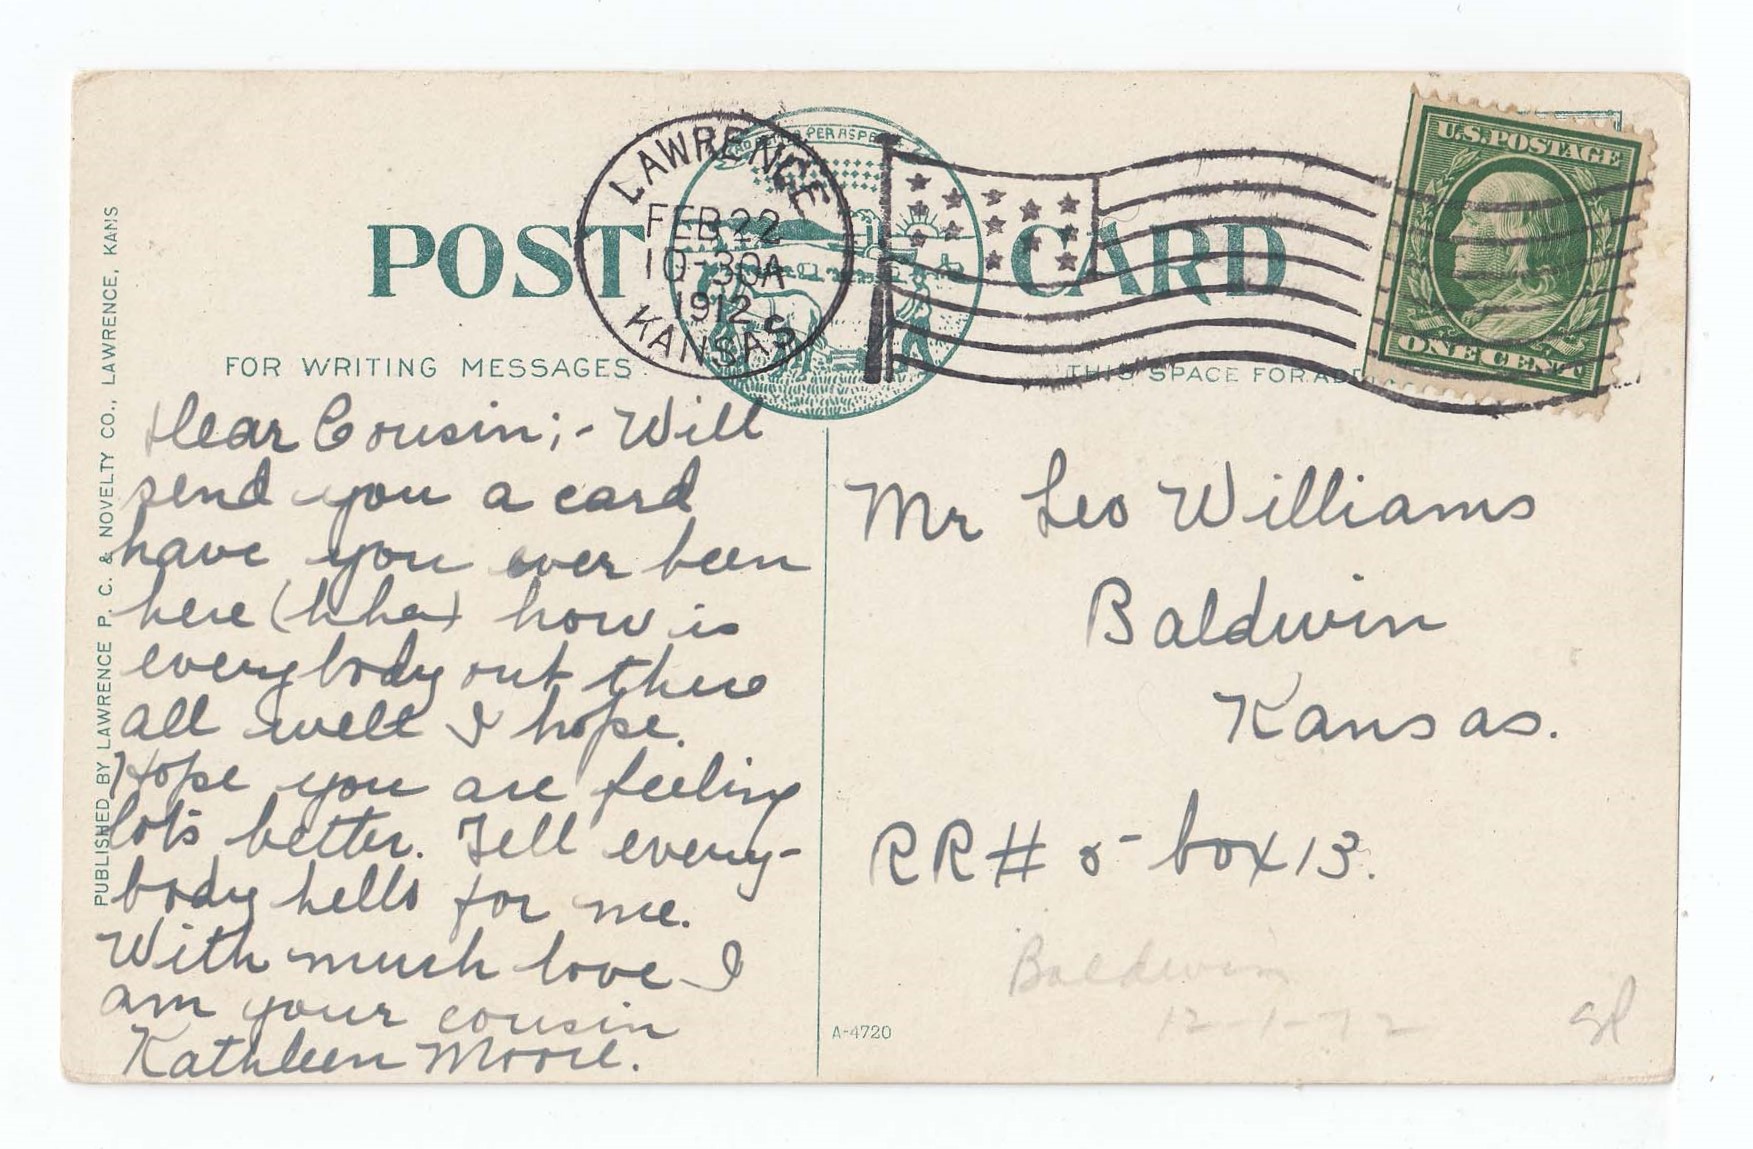 POST CARD
AD ASTRA PER ASPERA
LAWRENCE
FEB 22
10-30A
1912
KANSAS
U.S. POSTAGE
ONE CENT
FOR WRITING MESSAGES
THIS SPACE FOR
PUBLISHED BY LAWRENCE P. C. & NOVELTY CO., LAWRENCE, KANS
Dear Cousin;- Will
send you a card
have you ever been
here (ha ha) how is
everybody out there
all well I hope.
Hope you are feeling
lots better. Tell every-
body hello for me.
With much love I
am your cousin
Kathleen Moore.
Mr Leo Williams
Baldwin
Kansas.
RR# 5- box 13.
Baldwin
12-1-72
A-4720